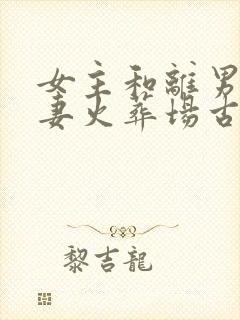 女主和離男
妻火葬場古
黎吉龍